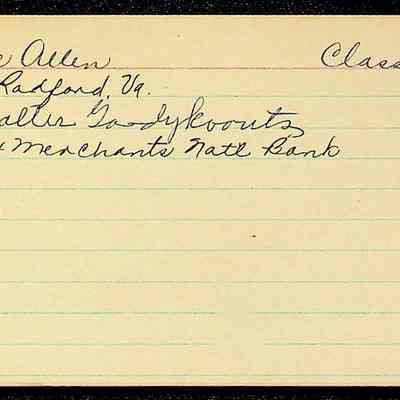 Allen Class
Radford, Va.
Goodykoontz
Merchants Natl Bank